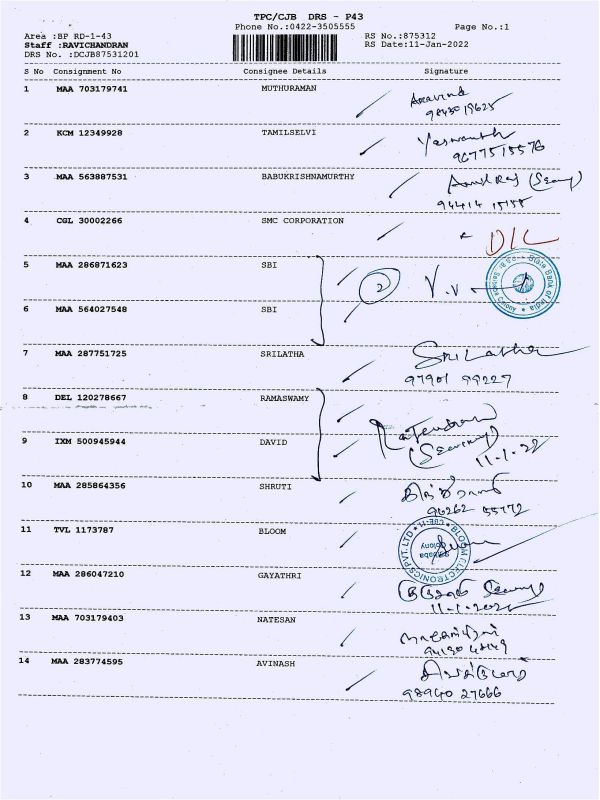 TPC/CJB DRS - P43
Phone No.:0422-3505555
Page No.:1
Area :BP RD-1-43
RS No.:875312
Staff :RAVICHANDRAN
RS Date:11-Jan-2022
DRS No. :DCJB87531201
S No Consignment No Consignee Details Signature
1 MAA 703179741 MUTHURAMAN
Aravind
9843019625
2 KCM 12349928 TAMILSELVI
Yaswanth
9677515576
3 MAA 563887531 BABUKRISHNAMURTHY
94414 15158
4 CGL 30002266 SMC CORPORATION
D/C
5 MAA 286871623 SBI
2 V.V
State Bank of India
6 MAA 564027548 SBI
7 MAA 287751725 SRILATHA
Srilatha
97901 99227
8 DEL 120278667 RAMASWAMY
Rajendran
9 IXM 500945944 DAVID
11-1-22
10 MAA 285864356 SHRUTI
96262 55772
11 TVL 1173787 BLOOM
BLOOM ELECTRONICS PVT. LTD
12 MAA 286047210 GAYATHRI
11-1-2022
13 MAA 703179403 NATESAN
14 MAA 283774595 AVINASH
98940 27666